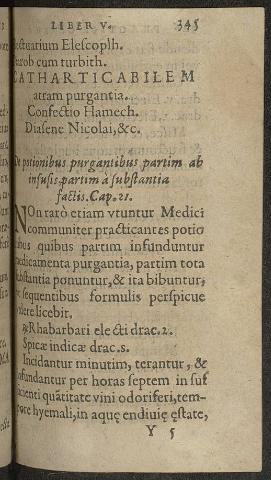 LIBER V. 345
lectuarium Elescoplh.
iarob cum turbith.
CATHARTICA BILEM
atram purgantia.
Confectio Hamech.
Diasene Nicolai, &c.
De potionibus purgantibus partim ab
infusis, partim à substantia
factis. Cap. 21.
NOn rarò etiam vtuntur Medici
communiter practicantes potio
ibus quibus partim infunduntur
medicamenta purgantia, partim tota
substantia ponuntur, & ita bibuntur,
sequentibus formulis perspicue
videre licebit.
℞ Rhabarbari electi drac. 2.
Spicæ indicæ drac. s.
Incidantur minutim, terantur, &
infundantur per horas septem in suf
ficienti quãtitate vini odoriferi, tem-
pore hyemali, in aquę endiuię ęstate,
Y 5